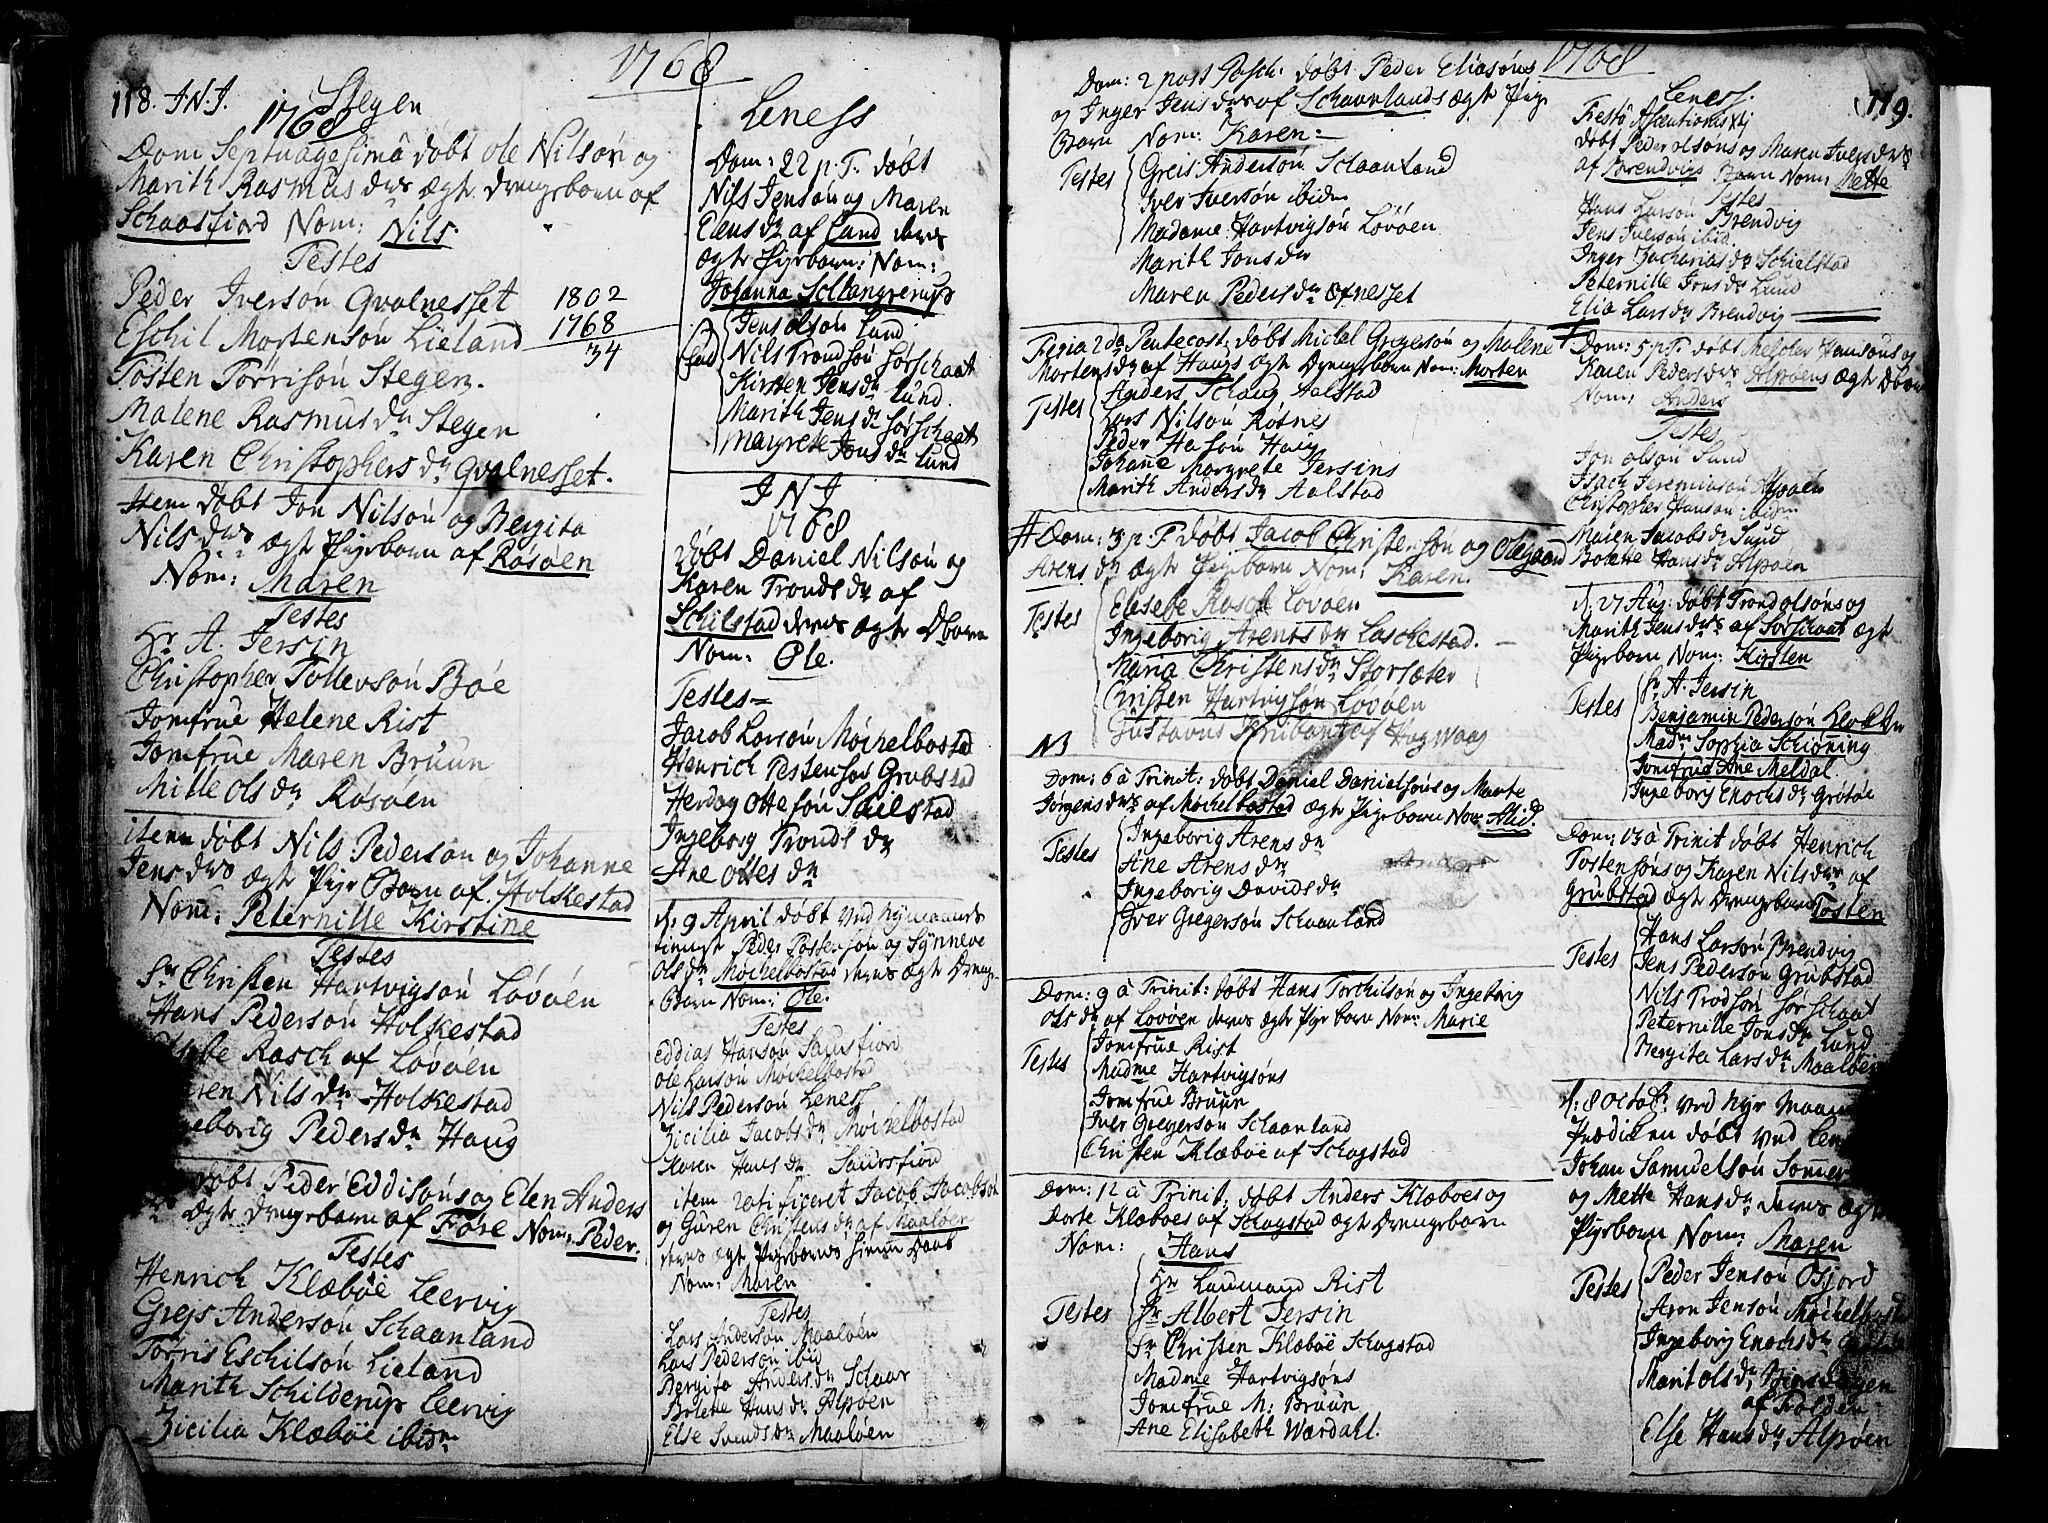 1768
118. J.N.J. Stegen
1768
Dom Septuagesima døbt Ole Nilsøn og
Marith Rasmus dr ægte Drengebarn af
Schaasfiord Nom: Nils
Testes
Peder Iversøn Qvalnesset
Eschil Mortensøn Lieland
Tosten Tørrisøn Stegen.
Malene Rasmus dr Stegen
Karen Christophers dr Qvalnesset.
1802
1768
34
Item døbt Jon Nilsøn og Bergita
Nils drs ægte Pigebarn af Røsøen
Nom: Maren
Testes
Hr A. Jersin
Christopher Tollevsøn Bøe
Jomfrue Helene Rist
Jomfrue Maren Bruun
Mille Ols dr Røsøen
item døbt Nils Pedersøn og Johanne
Jens drs ægte Pige Barn af Holkestad
Nom: Peternille Kirstine
Testes
Sr Christen Hartvigsøn Løvøen
Hans Pedersøn Holkestad
Rasch af Løvøen
Nils dr Holkestad
Peders dr Haug
døbt Peder Eddisøns og Elen Anders
ægte Drengebarn af Føre Nom: Peder.
Testes
Henrich Klæbøe Leervig
Grejs Andersøn Schaanland
Tørris Eschilsøn Lieland
Marith Schilderup Leervig
Zicilia Klæbøe ibidm
Leness
Dom: 22 p. T. døbt
Nils Jensøn og Maren
Elens dr af Lund deres
ægte Pigebarn: Nom:
Johanna Schlangrerup
Jens Olsøn Lund
Nils Trondsøn Sørschaat
Kirsten Jens dr Lund.
Marith Jens dr Sørschaat
Margrete Jons dr Lund
J N J
1768
døbt Daniel Nilsøn og
Karen Tronds dr af
Schilstad deres ægte D barn
Nom: Ole.
Testes
Jacob Larsøn Møchelbostad
Henrich Testensøn Grubstad
Herdag Ottesøn Skilstad
Ingeborg Tronds dr
Ane Ottes dr
d: 9 April døbt ved Nÿmaaneds
tienest Peder Tostensøn og Sÿnneve
Ols dr Møchelbostad deres ægte Drenge
Barn Nom: Ole.
Testes
Eddias Hansøn Saursfiord
Ole Larsøn Møchelbostad
Nils Pedersøn Leness
Zicilia Jacobs dr Møchelbostad
Karen Hans dr Saursfiord
item ratificeret Jacob Jacobsøn
og Guren Christens dr af Maaløen
deres ægte Pigebarns hiemme Daab
Nom: Maren
Testes
Lars Andersøn Maaløen
Lars Pedersøn ibid
Bergita Anders dr Schaar
Bolette Hans dr Alpøen
Else Svends dr Maaløen
1768
Dom: 2 post Pasch: døbt Peder Eliasøns
og Inger Jens drs af Schaanlands ægte Pige
Barn Nom: Karen
Testes
Greis Andersøn Schaanland
Iver Iversøn ibidm
Madame Hartvigsøn Løvøen
Marith Jons dr
Maren Peders dr Øfnesset
Feria 2da Pentecost: døbt Michel Gregersøn og Malene
Mortens dr af Haugs ægte Drengebarn Nom: Morten
Testes
Anders Schaug Aalstad
Lars Nilsøn Røtnes
Peder Hansøn Haug
Johanne Margrete Jersins
Marith Anders dr Aalstad
Dom: 3 p. T døbt Jacob Christensøn og Olegaard
Arens dr ægte Pigebarn Nom: Karen.
Testes
Elisebe Rasch Løvøen
Ingeborig Arents dr Laschestad.
Maria Christens dr Storsæter
Christen Hartvigsøn Løvøen
Gustavus af Hagwaag
NB
Dom: 6 à Trinit: døbt Daniel Danielsøns og Marte
Jørgens drs af Møchelbostad ægte Pigebarn Nom: Alid.
Testes
Ingeborig Arens dr
Ane Arens dr
Ingeborig Davids dr
Iver Gregersøn Schaanland
Dom: 9 à Trinit: døbt Hans Torchilsøn og Ingeborig
Ols dr af Løvøen deres ægte Pigebarn Nom: Marie
Testes
Jomfrue Rist
Madme Hartvigsøns
Jomfrue Bruun
Iver Gregersøn Schaanland
Christen Klæbøe af Schagstad
Dom: 12 à Trinit: døbt Anders Klæboes og
Dorte Klæboes af Schagstad ægte Drengebarn
Nom: Hans
Testes
Hr Landmand Rist
Hr Albert Jersin
Sr Christen Klæbøe Schagstad
Madme Hartvigsøns
Jomfrue M: Bruun
Ane Elisabeth Wærdahl.
119.
Leness.
Festo Ascentionis Xti
døbt Peder Olsøns og Maren Ivers drs
af Brendvigs Barn Nom: Mette
Testes
Hans Larsøn Brendvig
Jens Iversøn ibid.
Inger Zacharias dr Schielstad
Peternille Jons dr Lund
Elia Lars dr Brendvig
Dom: 5 p T. døbt Melcher Hansøns og
Karen Peders drs Alpøens ægte D barn
Nom: Anders
Testes
Jon Olsøn Lund
Isach Jeremiasøn Alpøen
Christopher Hansøn ibidm
Maren Jacobs dr Lund
Bolette Hans dr Alpøen
d: 27 Aug: døbt Trond Olsøns og
Marith Jens drs af Sørschaat ægte
Pigebarn Nom: Kirsten
Testes
Hr A. Jersin
Benjamin Pedersøn Klokker
Madm Sophia Schiøning
Jomfrue Ane Meldal
Ingeborg Enochs dr Grøtøe
Dom: 13 à Trinit døbt Henrich
Tostensøns og Karen Nils drs af
Grubstad ægte Drengebarn Tosten
Testes
Hans Larsøn Brendvig
Jens Pedersøn Grubstad
Nils Trodsøn Sørschaat
Peternille Jons dr Lund
Bergita Lars dr Maaløen
d: 8 Octob: ved Nye Maan
Prædiken døbt ved Len
Johan Samuelsøn Sommer
og Mette Hans dr deres ægte
Pigebarn Nom: Maren
Testes
Peder Jensøn Ofjord
Aron Jensøn Møchelbostad
Ingeborg Enochs dr
Marit Ols dr
af Folden
Else Hans dr Alpøen